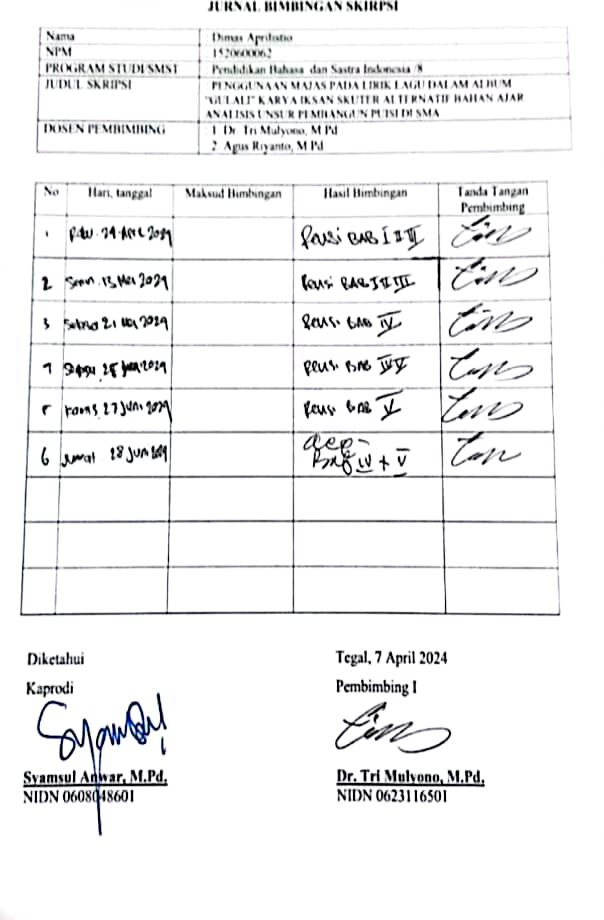 JURNAL BIMBINGAN SKIRPSI
Nama Dimas Aprilistio
NPM 1520600062
PROGRAM STUDI/SMST Pendidikan Bahasa dan Sastra Indonesia /8
JUDUL SKRIPSI PENGGUNAAN MAJAS PADA LIRIK LAGU DALAM ALBUM
"GULALI" KARYA IKSAN SKUTER ALTERNATIF BAHAN AJAR
ANALISIS UNSUR PEMBANGUN PUISI DI SMA
DOSEN PEMBIMBING 1. Dr. Tri Mulyono, M.Pd
2. Agus Riyanto, M.Pd
No Hari, tanggal Maksud Bimbingan Hasil Bimbingan Tanda Tangan
Pembimbing
1 2024 Revisi BAB I II III
2 Senin, 13 Mei 2024 Revisi BAB I II III
3 21 2024 Revisi BAB IV
4 25 Juni 2024 Revisi BAB IV V
5 Kamis, 27 Juni 2024 Revisi BAB V
6 Jumat 28 Juni 2024 acc
Bab IV + V
Diketahui Tegal, 7 April 2024
Kaprodi Pembimbing I
Syamsul Anwar, M.Pd. Dr. Tri Mulyono, M.Pd.
NIDN 0608048601 NIDN 0623116501